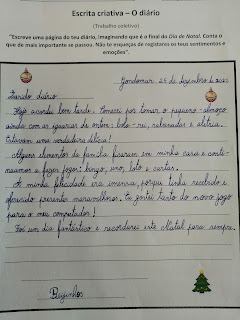 Escrita criativa – O diário
(Trabalho coletivo)
"Escreve uma página do teu diário, imaginando que é o final do Dia de Natal. Conta o
que de mais importante se passou. Não te esqueças de registares os teus sentimentos e
emoções".
Gondomar, 25 de dezembro de
Querido diário
Hoje acordei bem tarde. Comecei por tomar o pequeno-almoço
ainda com as iguarias de ontem: bolo-rei, rabanadas e aletria.
Estavam uma verdadeira delícia!
Alguns elementos da família ficaram em minha casa e conti-
nuamos a fazer jogos: bingo, uno, loto e cartas.
A minha felicidade era imensa, porque tinha recebido e
oferecido presentes maravilhosos. Eu gostei tanto do novo jogo
para o meu computador!
Foi um dia fantástico e recordarei este Natal para sempre.
Beijinhos